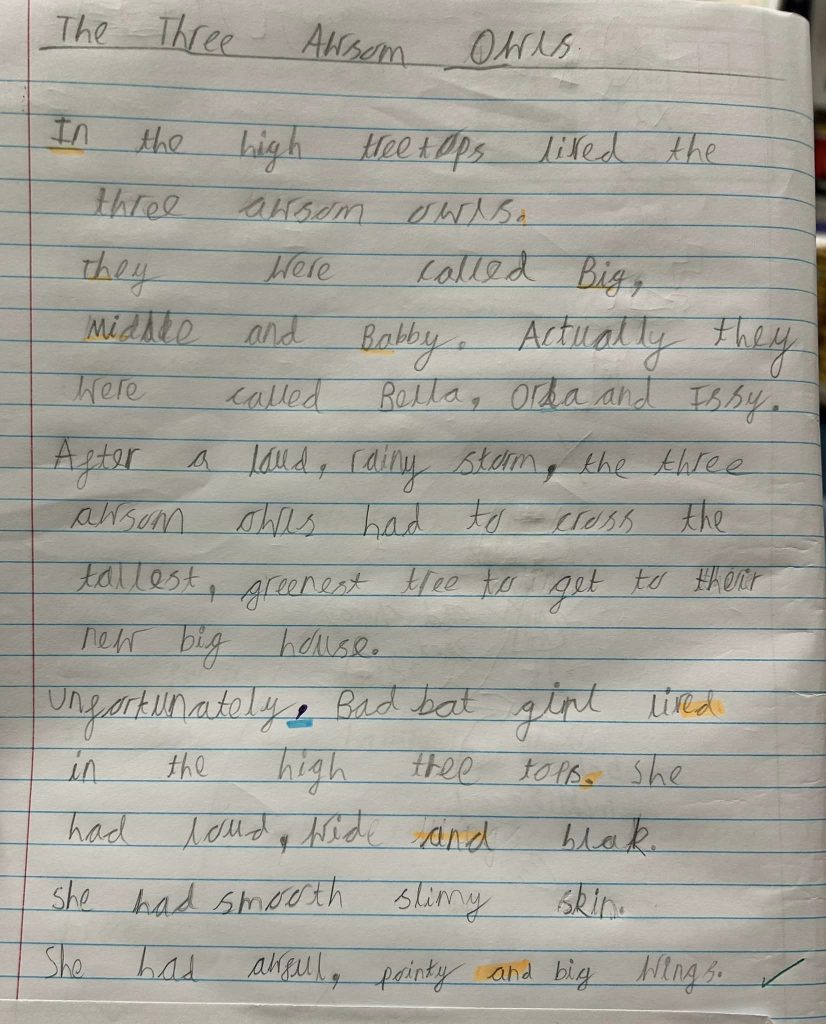 The Three Awsom Owls.
In the high treetops lived the
three awsom owls.
they were called Big,
middle and Babby. Actually they
were called Bella, Orla and Issy.
After a loud, rainy storm, the three
awsom owls had to cross the
tallest, greenest tree to get to their
new big house.
Unfortunately, Bad bat girl lived
in the high tree tops. She
had loud, wide and blak.
She had smooth slimy skin.
She had awful, pointy and big wings.